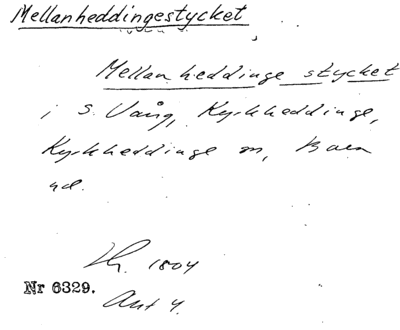 Mellanheddingestycket
Mellanheddinge stycket
i S. Vång, Kyrkheddinge,
Kyrkheddinge sn, Bara
hd.
Lh. 1804
Nr 6329.
Akt 4.